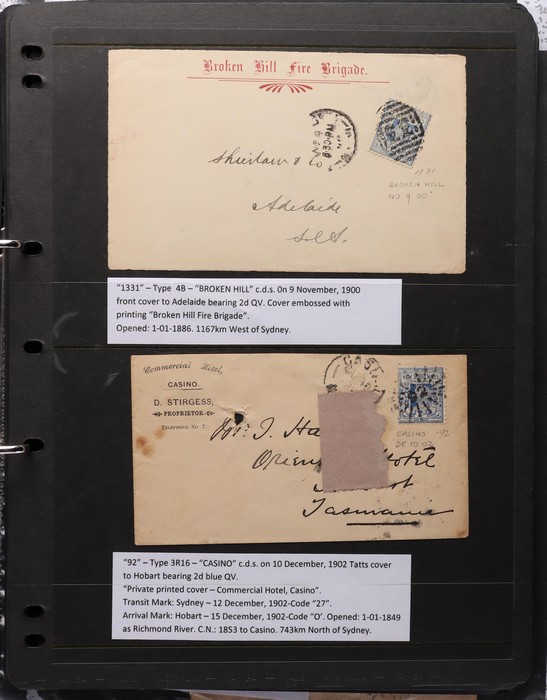 Broken Hill Fire Brigade.
Adelaide
S.A.
1331
BROKEN HILL
NO 9 00
"1331" – Type 4B – "BROKEN HILL" c.d.s. 0n 9 November, 1900
front cover to Adelaide bearing 2d QV. Cover embossed with
printing "Broken Hill Fire Brigade".
Opened: 1-01-1886. 1167km West of Sydney.
Commercial Hotel,
CASINO.
D. STIRGESS,
PROPRIETOR.
Telephone No 7.
CASI
Mr. J. Ha
Orien Hotel
Tasmania
CASINO -92
DE 10 02
"92" – Type 3R16 – "CASINO" c.d.s. on 10 December, 1902 Tatts cover
to Hobart bearing 2d blue QV.
"Private printed cover – Commercial Hotel, Casino".
Transit Mark: Sydney – 12 December, 1902-Code "27".
Arrival Mark: Hobart – 15 December, 1902-Code "O'. Opened: 1-01-1849
as Richmond River. C.N.: 1853 to Casino. 743km North of Sydney.